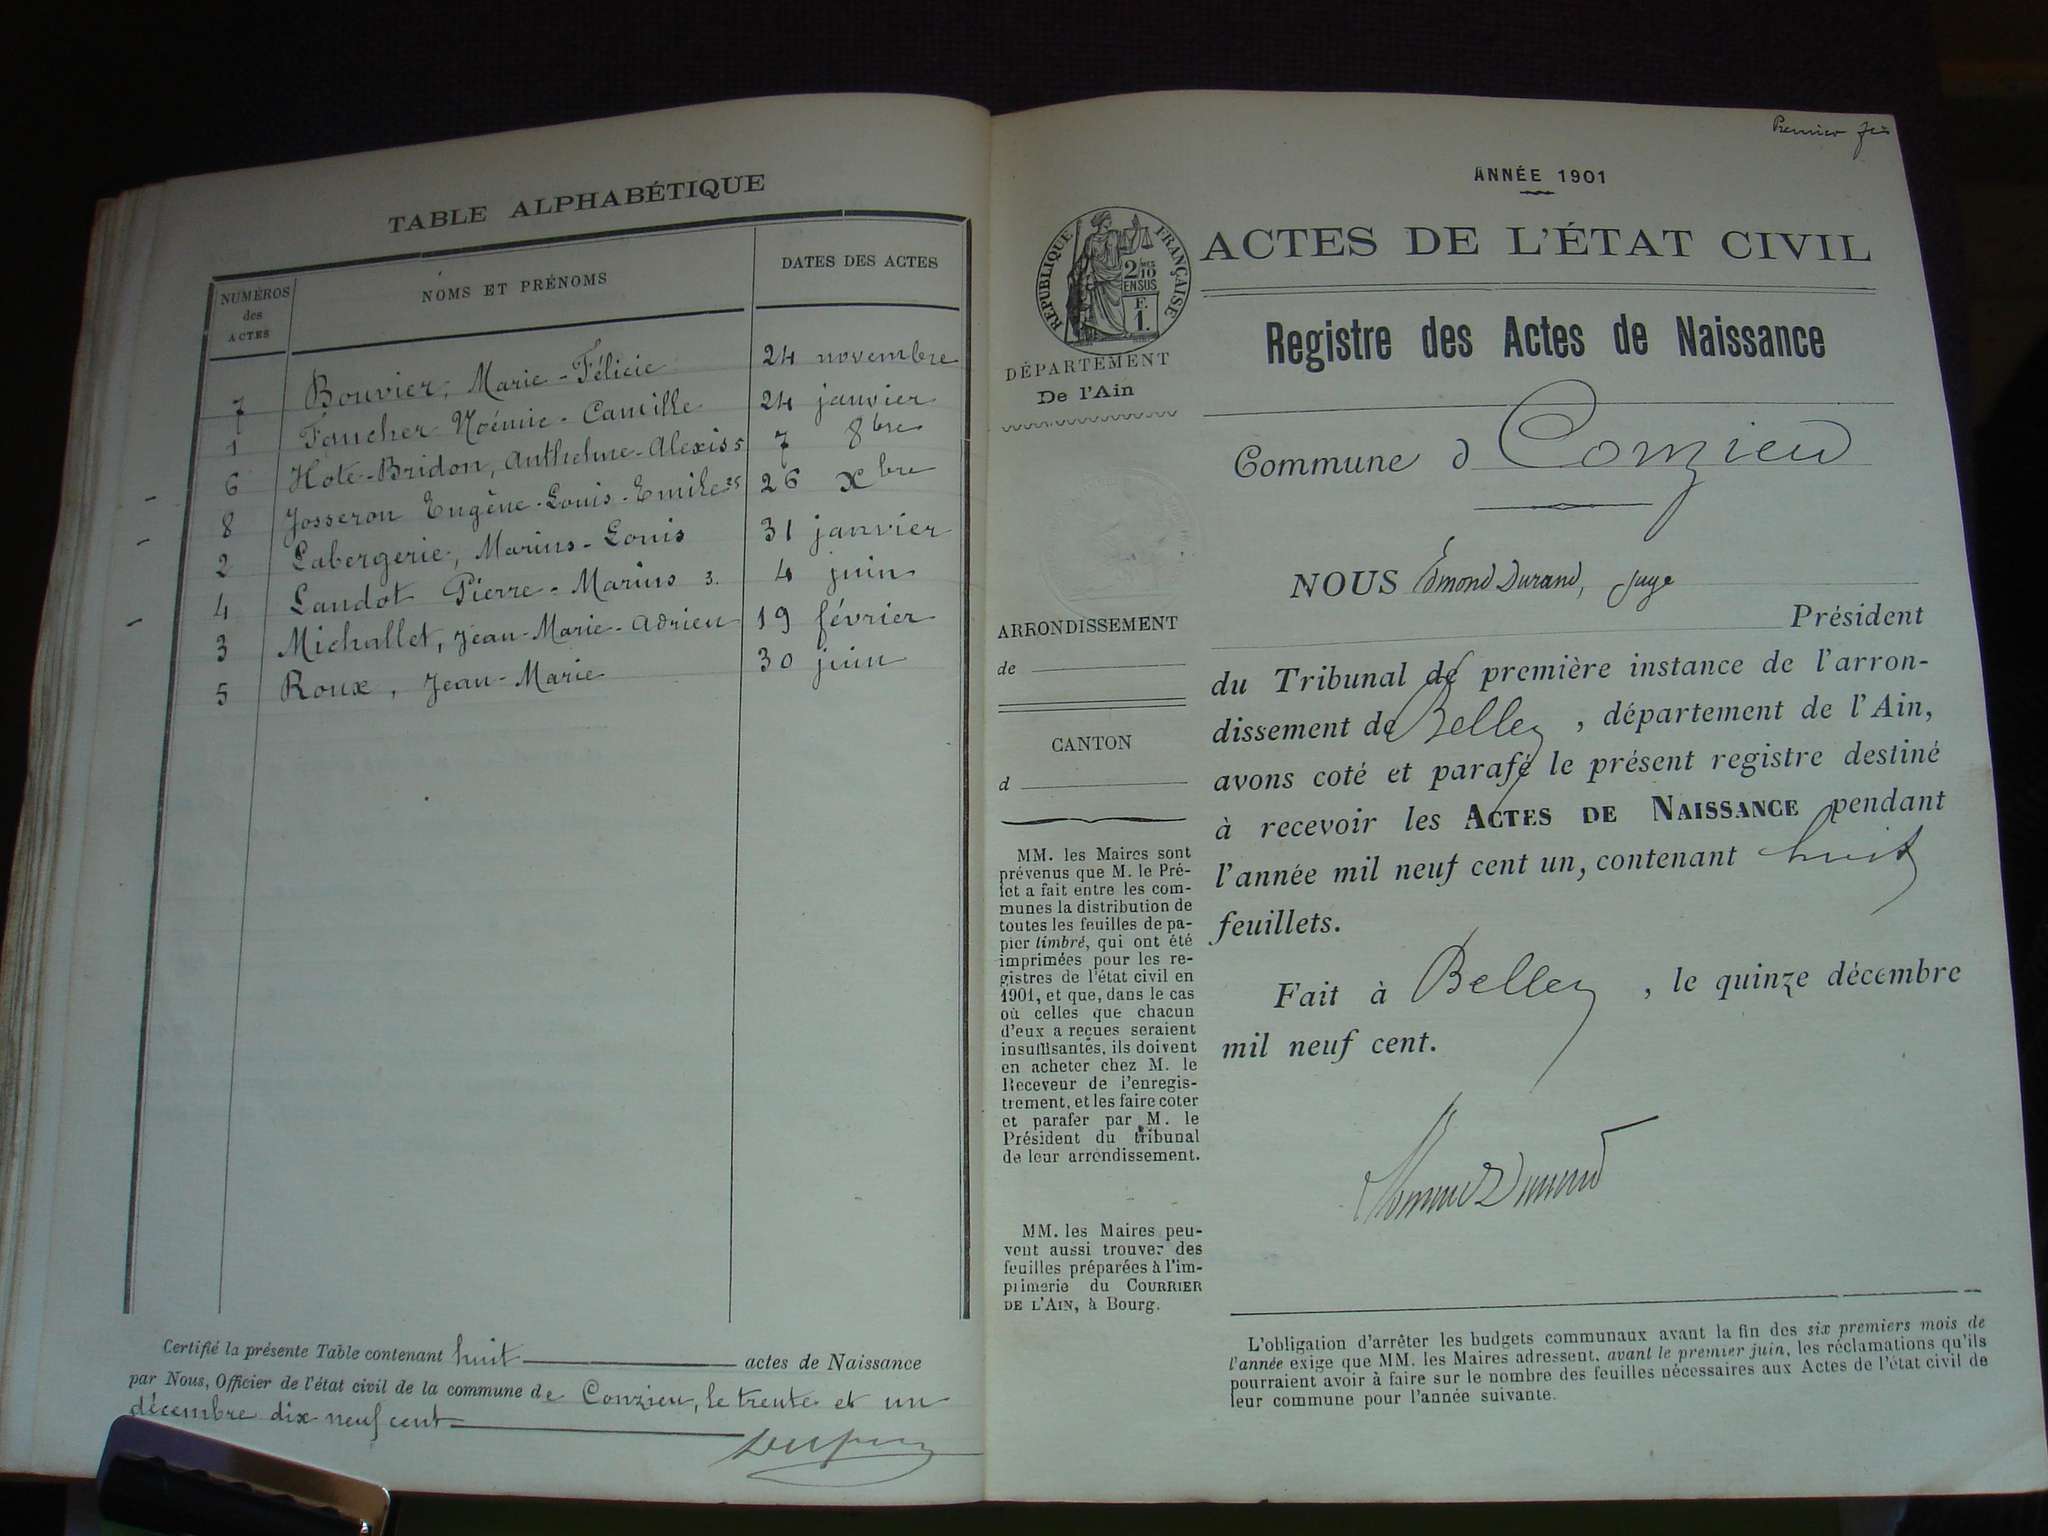 TABLE ALPHABÉTIQUE
NUMÉROS des ACTES
NOMS ET PRÉNOMS
DATES DES ACTES
7 Bouvier, Marie-Félicie 24 novembre
1 Faucher Noémie-Camille 24 janvier
6 Hote-Bridon, Anthelme-Alexis 5 7 8bre
8 Josseron Eugène-Louis-Emile 26 xbre
2 Labergerie, Marius-Louis 31 janvier
4 Landot Pierre-Marius 3. 4 juin
3 Michallet, Jean-Marie-Adrien 19 février
5 Roux, Jean-Marie 30 juin
Certifié la présente Table contenant huit actes de Naissance
par Nous, Officier de l'état civil de la commune de Conzieu, le trente et un
décembre dix neuf cent
Premier
ANNÉE 1901
ACTES DE L'ÉTAT CIVIL
RÉPUBLIQUE FRANÇAISE
2/10
EN SUS
F.
1.
DÉPARTEMENT
De l'Ain
Registre des Actes de Naissance
Commune d Conzieu
NOUS Edmond Durand, juge
Président
du Tribunal de première instance de l'arron-
dissement de Belley, département de l'Ain,
avons coté et parafé le présent registre destiné
à recevoir les ACTES DE NAISSANCE pendant
l'année mil neuf cent un, contenant huit
feuillets.
Fait à Belley, le quinze décembre
mil neuf cent.
ARRONDISSEMENT
de
CANTON
d
MM. les Maires sont
prévenus que M. le Pré-
fet a fait entre les com-
munes la distribution de
toutes les feuilles de pa-
pier timbré, qui ont été
imprimées pour les re-
gistres de l'état civil en
1901, et que, dans le cas
où celles que chacun
d'eux a reçues seraient
insuffisantes, ils doivent
en acheter chez M. le
Receveur de l'enregis-
trement, et les faire coter
et parafer par M. le
Président du tribunal
de leur arrondissement.
MM. les Maires peu-
vent aussi trouver des
feuilles préparées à l'im-
primerie du COURRIER
DE L'AIN, à Bourg.
L'obligation d'arrêter les budgets communaux avant la fin des six premiers mois de
l'année exige que MM. les Maires adressent, avant le premier juin, les réclamations qu'ils
pourraient avoir à faire sur le nombre des feuilles nécessaires aux Actes de l'état civil de
leur commune pour l'année suivante.